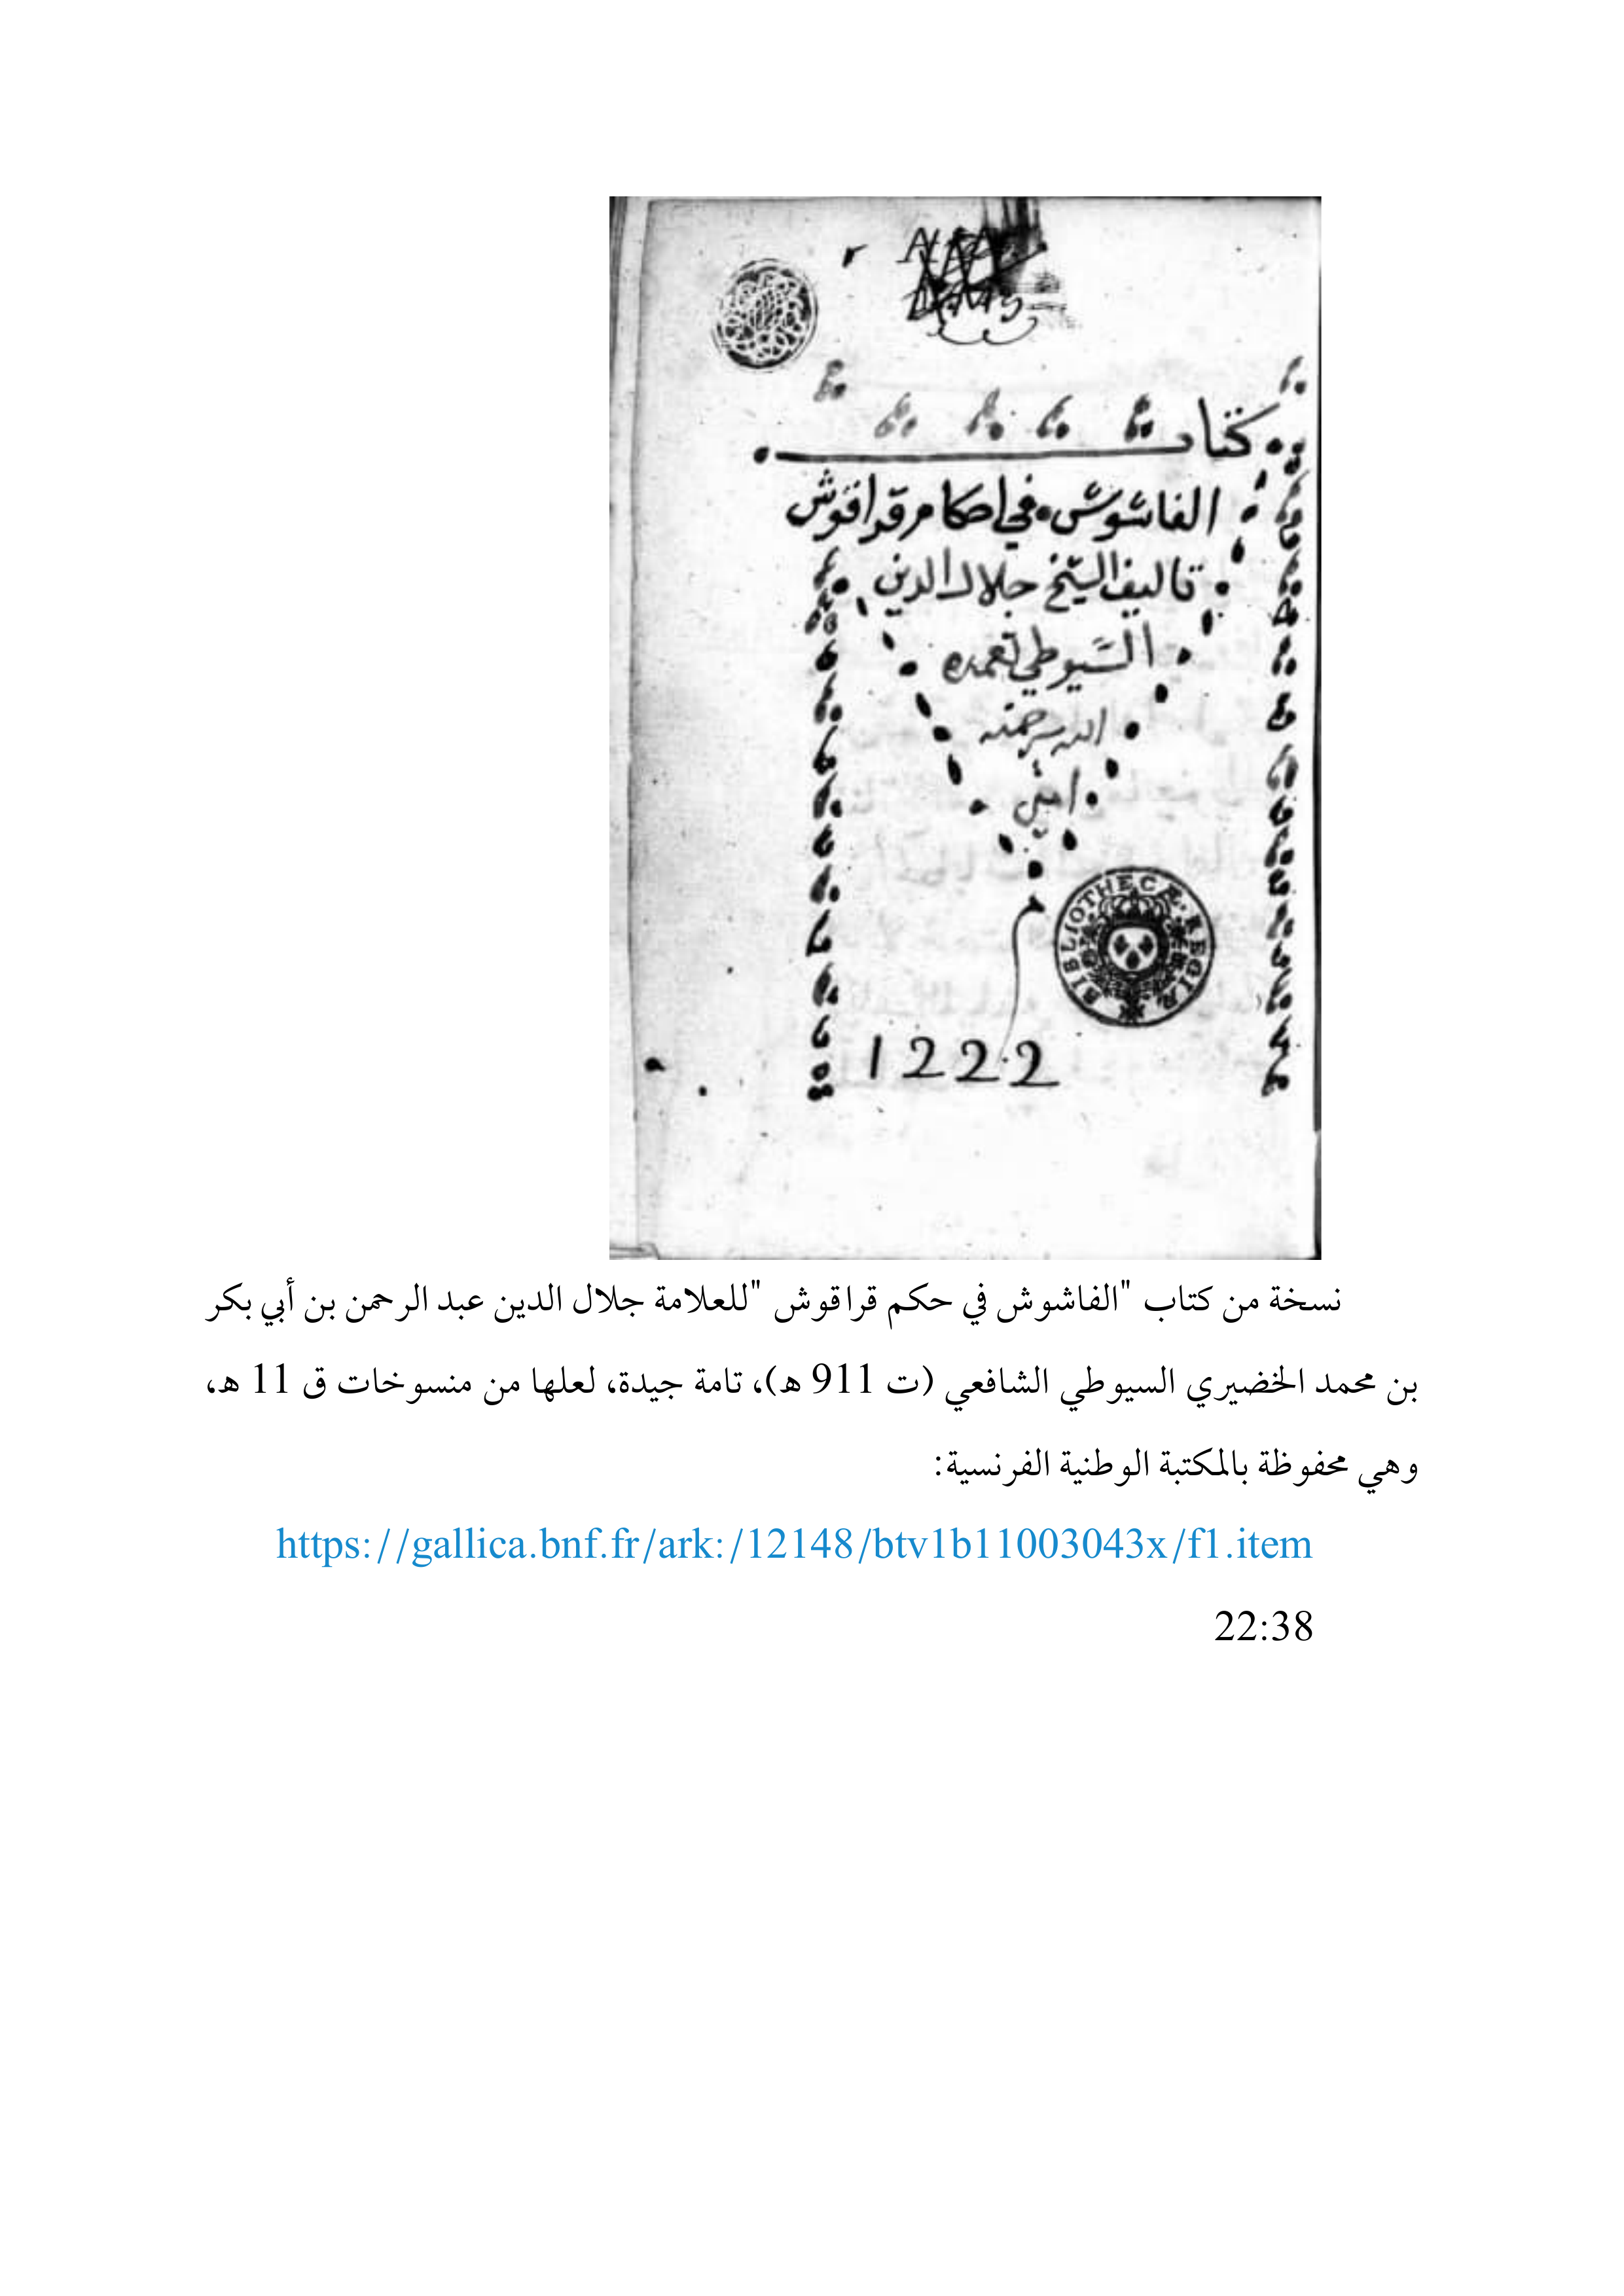 كتاب
الفاشوش في احكام قراقوش
تاليف الشيخ جلال الدين
السيوطي تغمده
الله برحمته
امين
BIBLIOTHECÆ REGIÆ
1222
نسخة من كتاب "الفاشوش في حكم قراقوش "للعلامة جلال الدين عبد الرحمن بن أبي بكر
بن محمد الخضيري السيوطي الشافعي (ت 911 ه)، تامة جيدة، لعلها من منسوخات ق 11 ه،
وهي محفوظة بالمكتبة الوطنية الفرنسية:
https://gallica.bnf.fr/ark:/12148/btv1b11003043x/f1.item
22:38